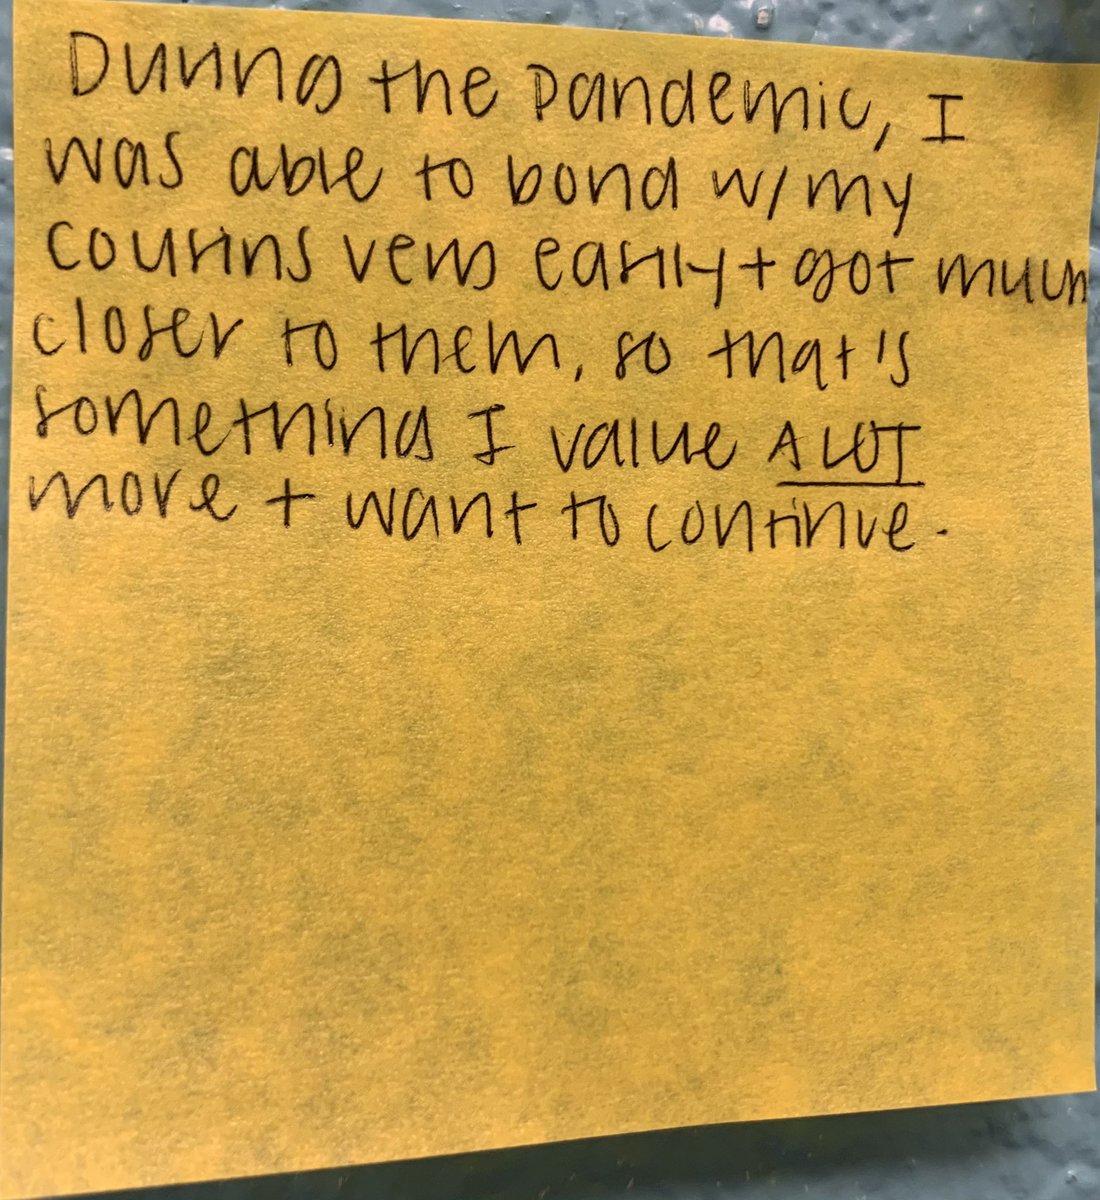 During the pandemic, I
was able to bond w/ my
cousins very easily + got much
closer to them, so that's
something I value A LOT
more + want to continue.